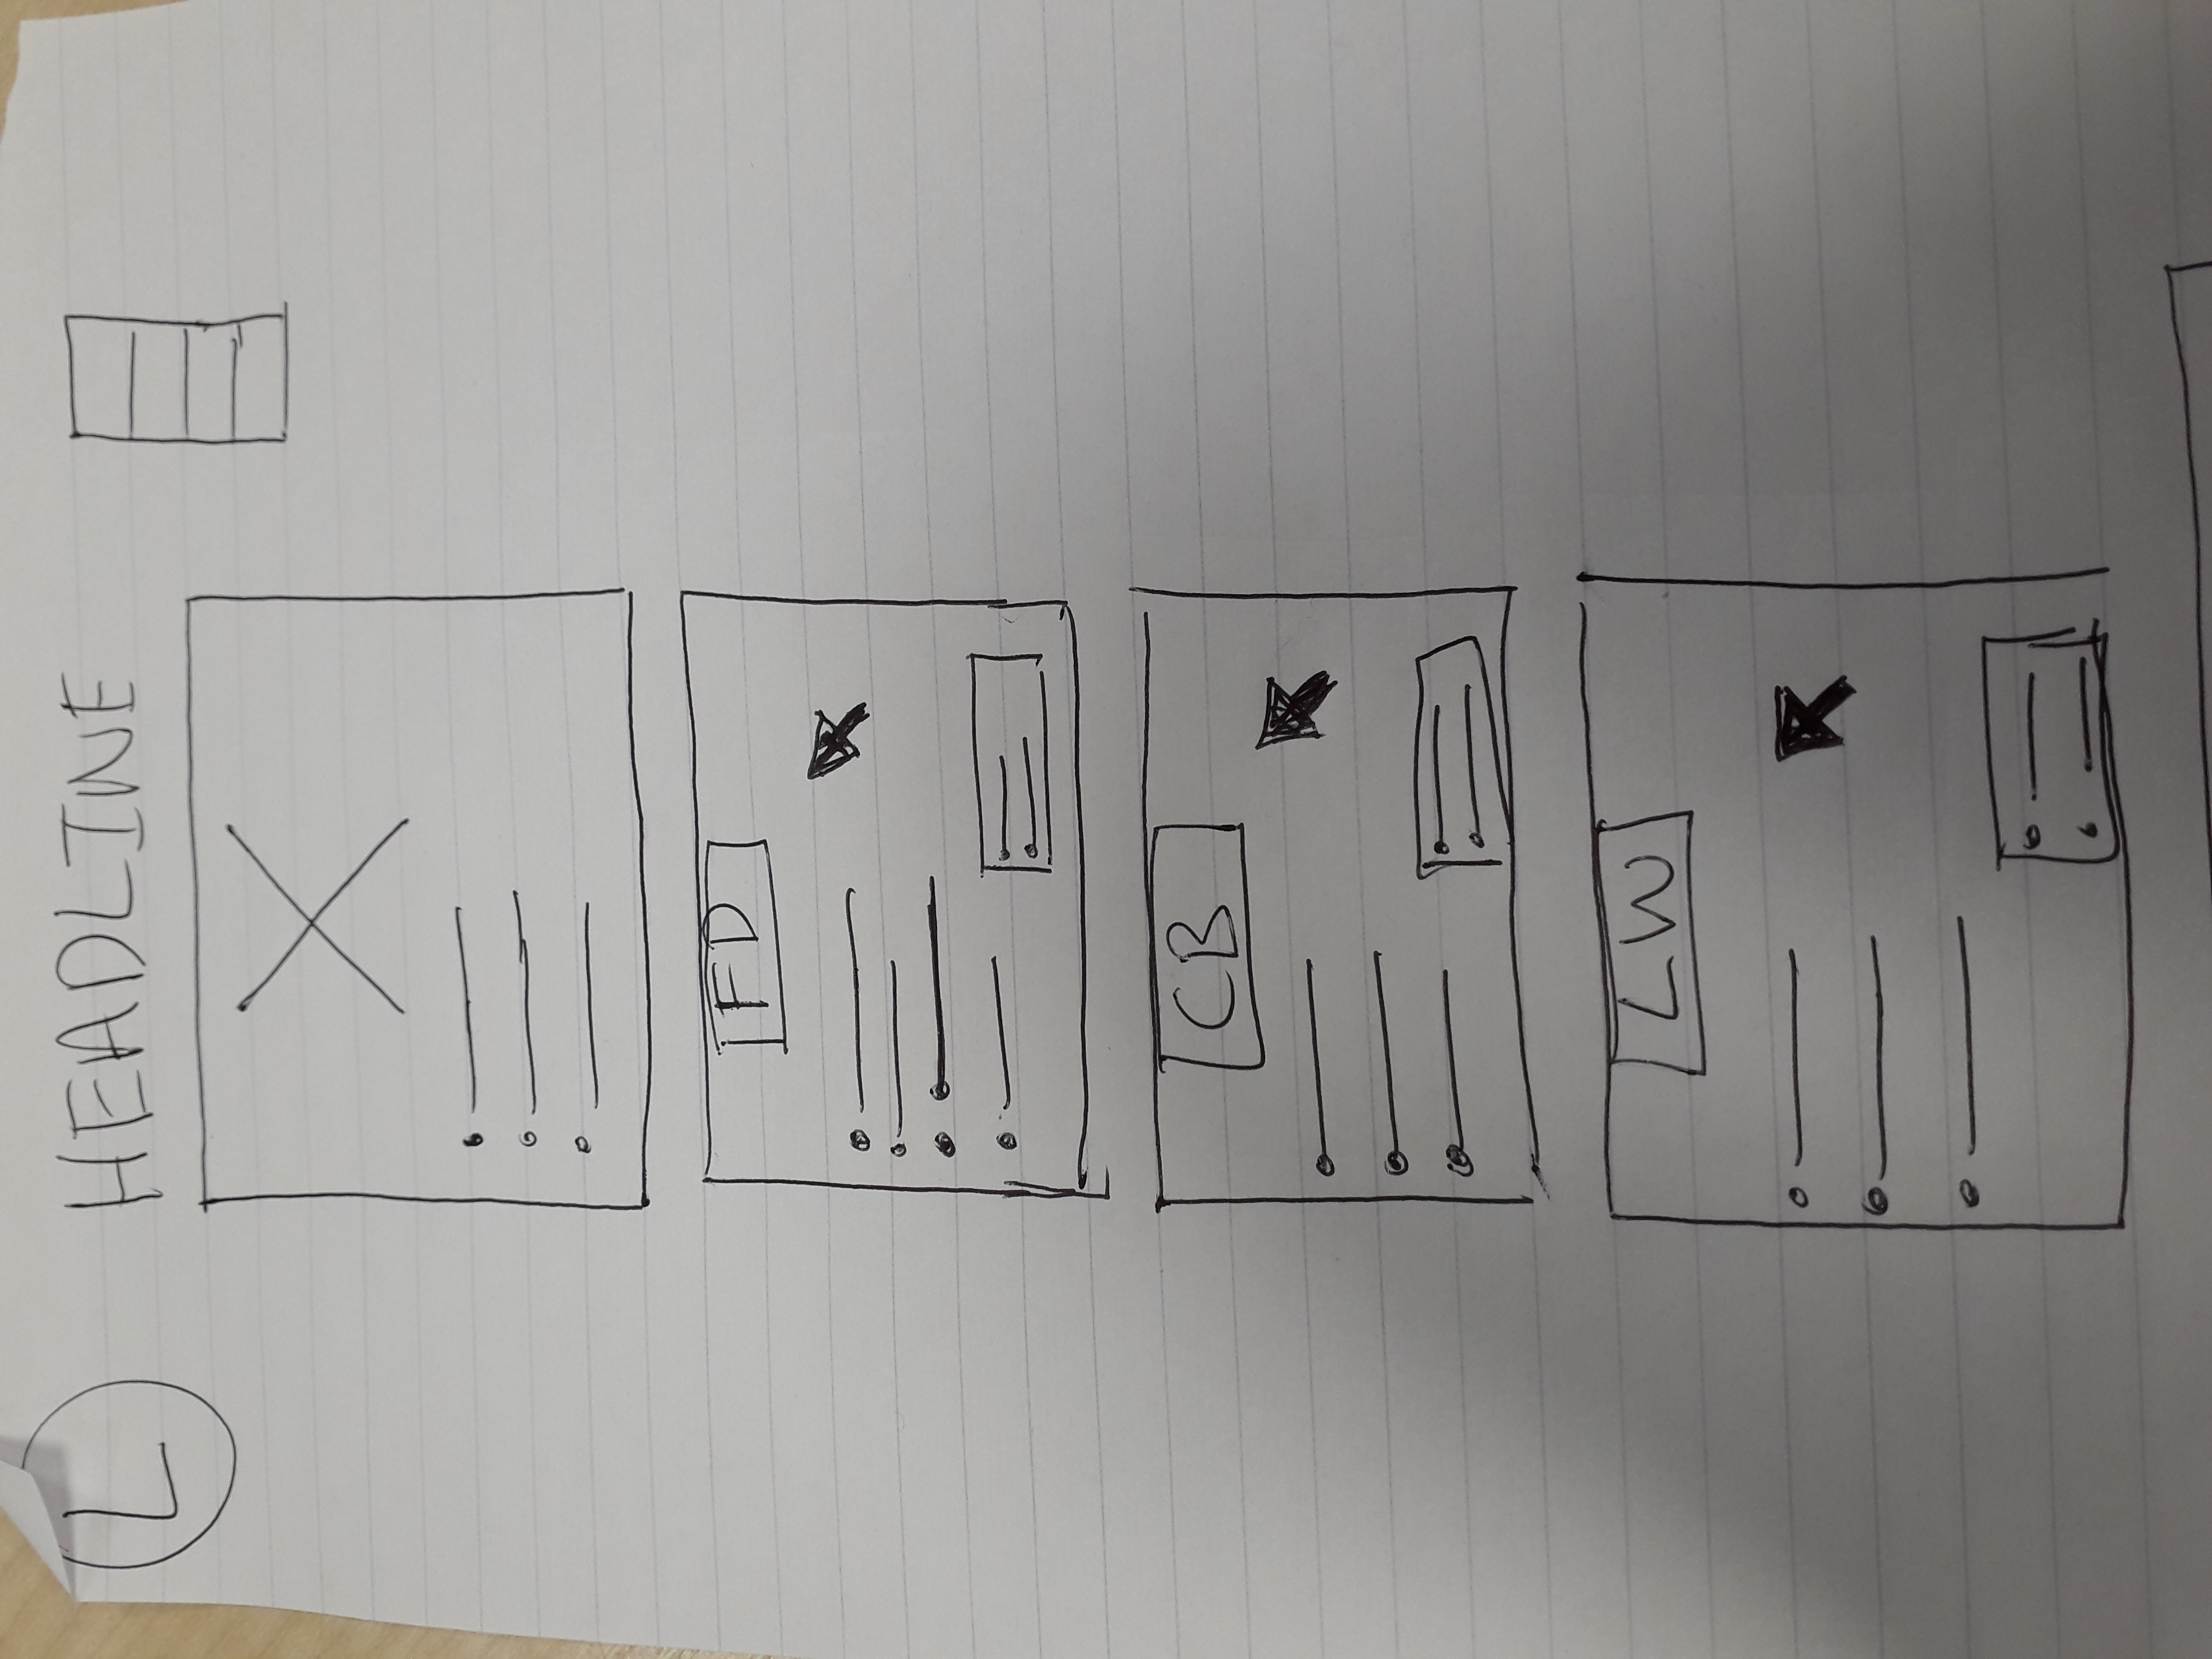 L
HEADLINE
FD
CB
LW